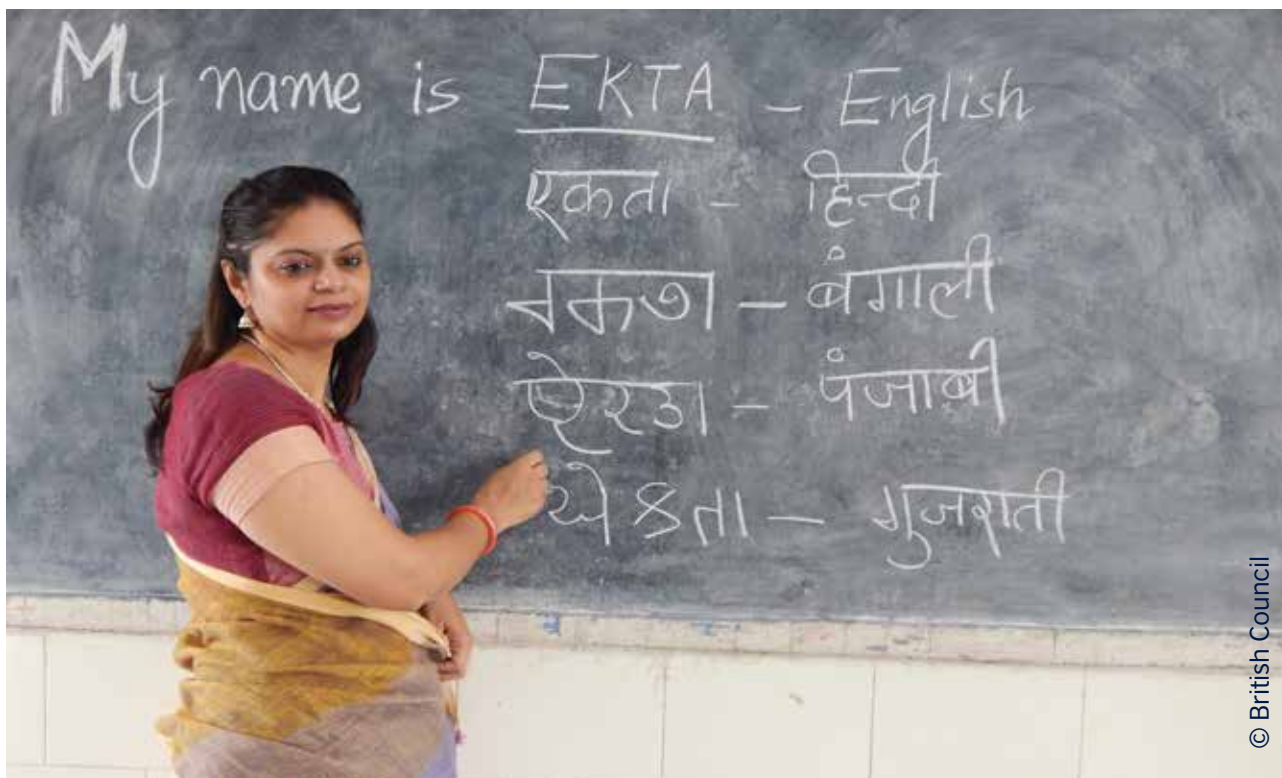 My name is EKTA - English
एकता - हिन्दी
একতা - बंगाली
ਐਕਤਾ - पंजाबी
એકતા - गुजराती
© British Council